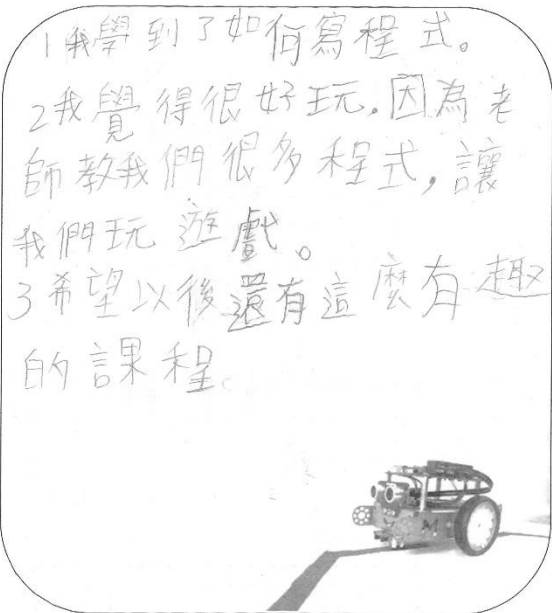 1我學到了如何寫程式。
2我覺得很好玩。因為老
師教我們很多程式,讓
我們玩遊戲。
3希望以後還有這麼有趣
的課程。